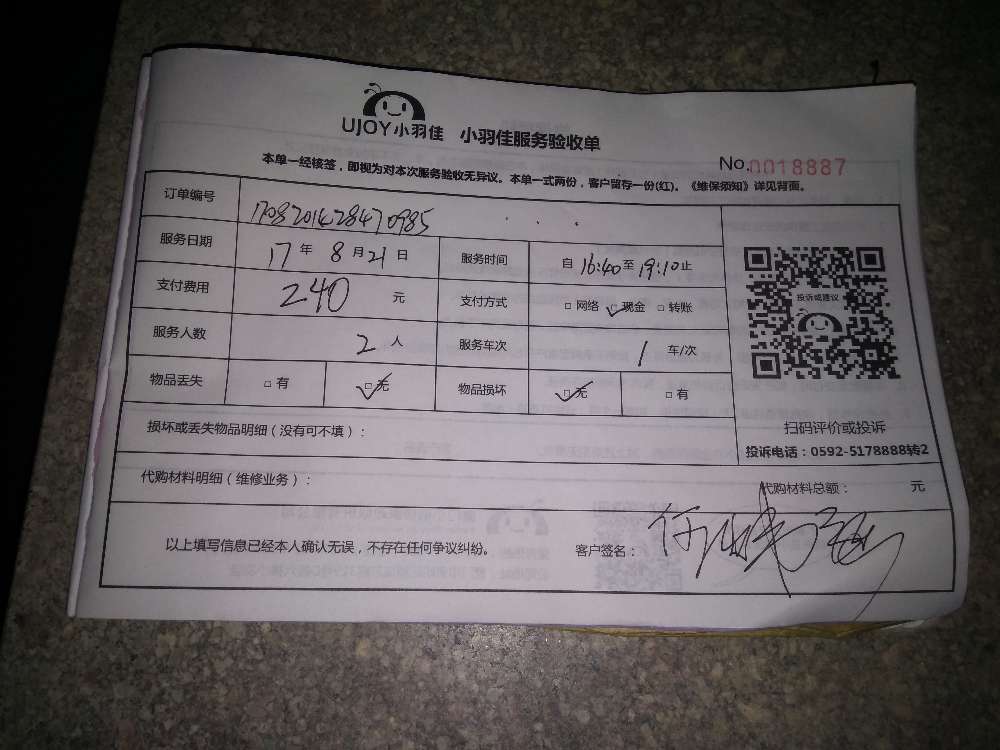 UJOY小羽佳 小羽佳服务验收单
No.0018887
本单一经核签，即视为对本次服务验收无异议。本单一式两份，客户留存一份(红)。《维保须知》详见背面。
订单编号 1708201428470985
服务日期 17 年 8 月 21 日 服务时间 自 16:40 至 19:10 止
支付费用 240 元 支付方式 □ 网络 □ 现金 □ 转账
服务人数 2 人 服务车次 1 车/次
物品丢失 □ 有 □ 无 物品损坏 □ 无 □ 有
投诉或建议
扫码评价或投诉
投诉电话：0592-5178888转2
损坏或丢失物品明细（没有可不填）：
代购材料明细（维修业务）：
代购材料总额： 元
以上填写信息已经本人确认无误，不存在任何争议纠纷。 客户签名：